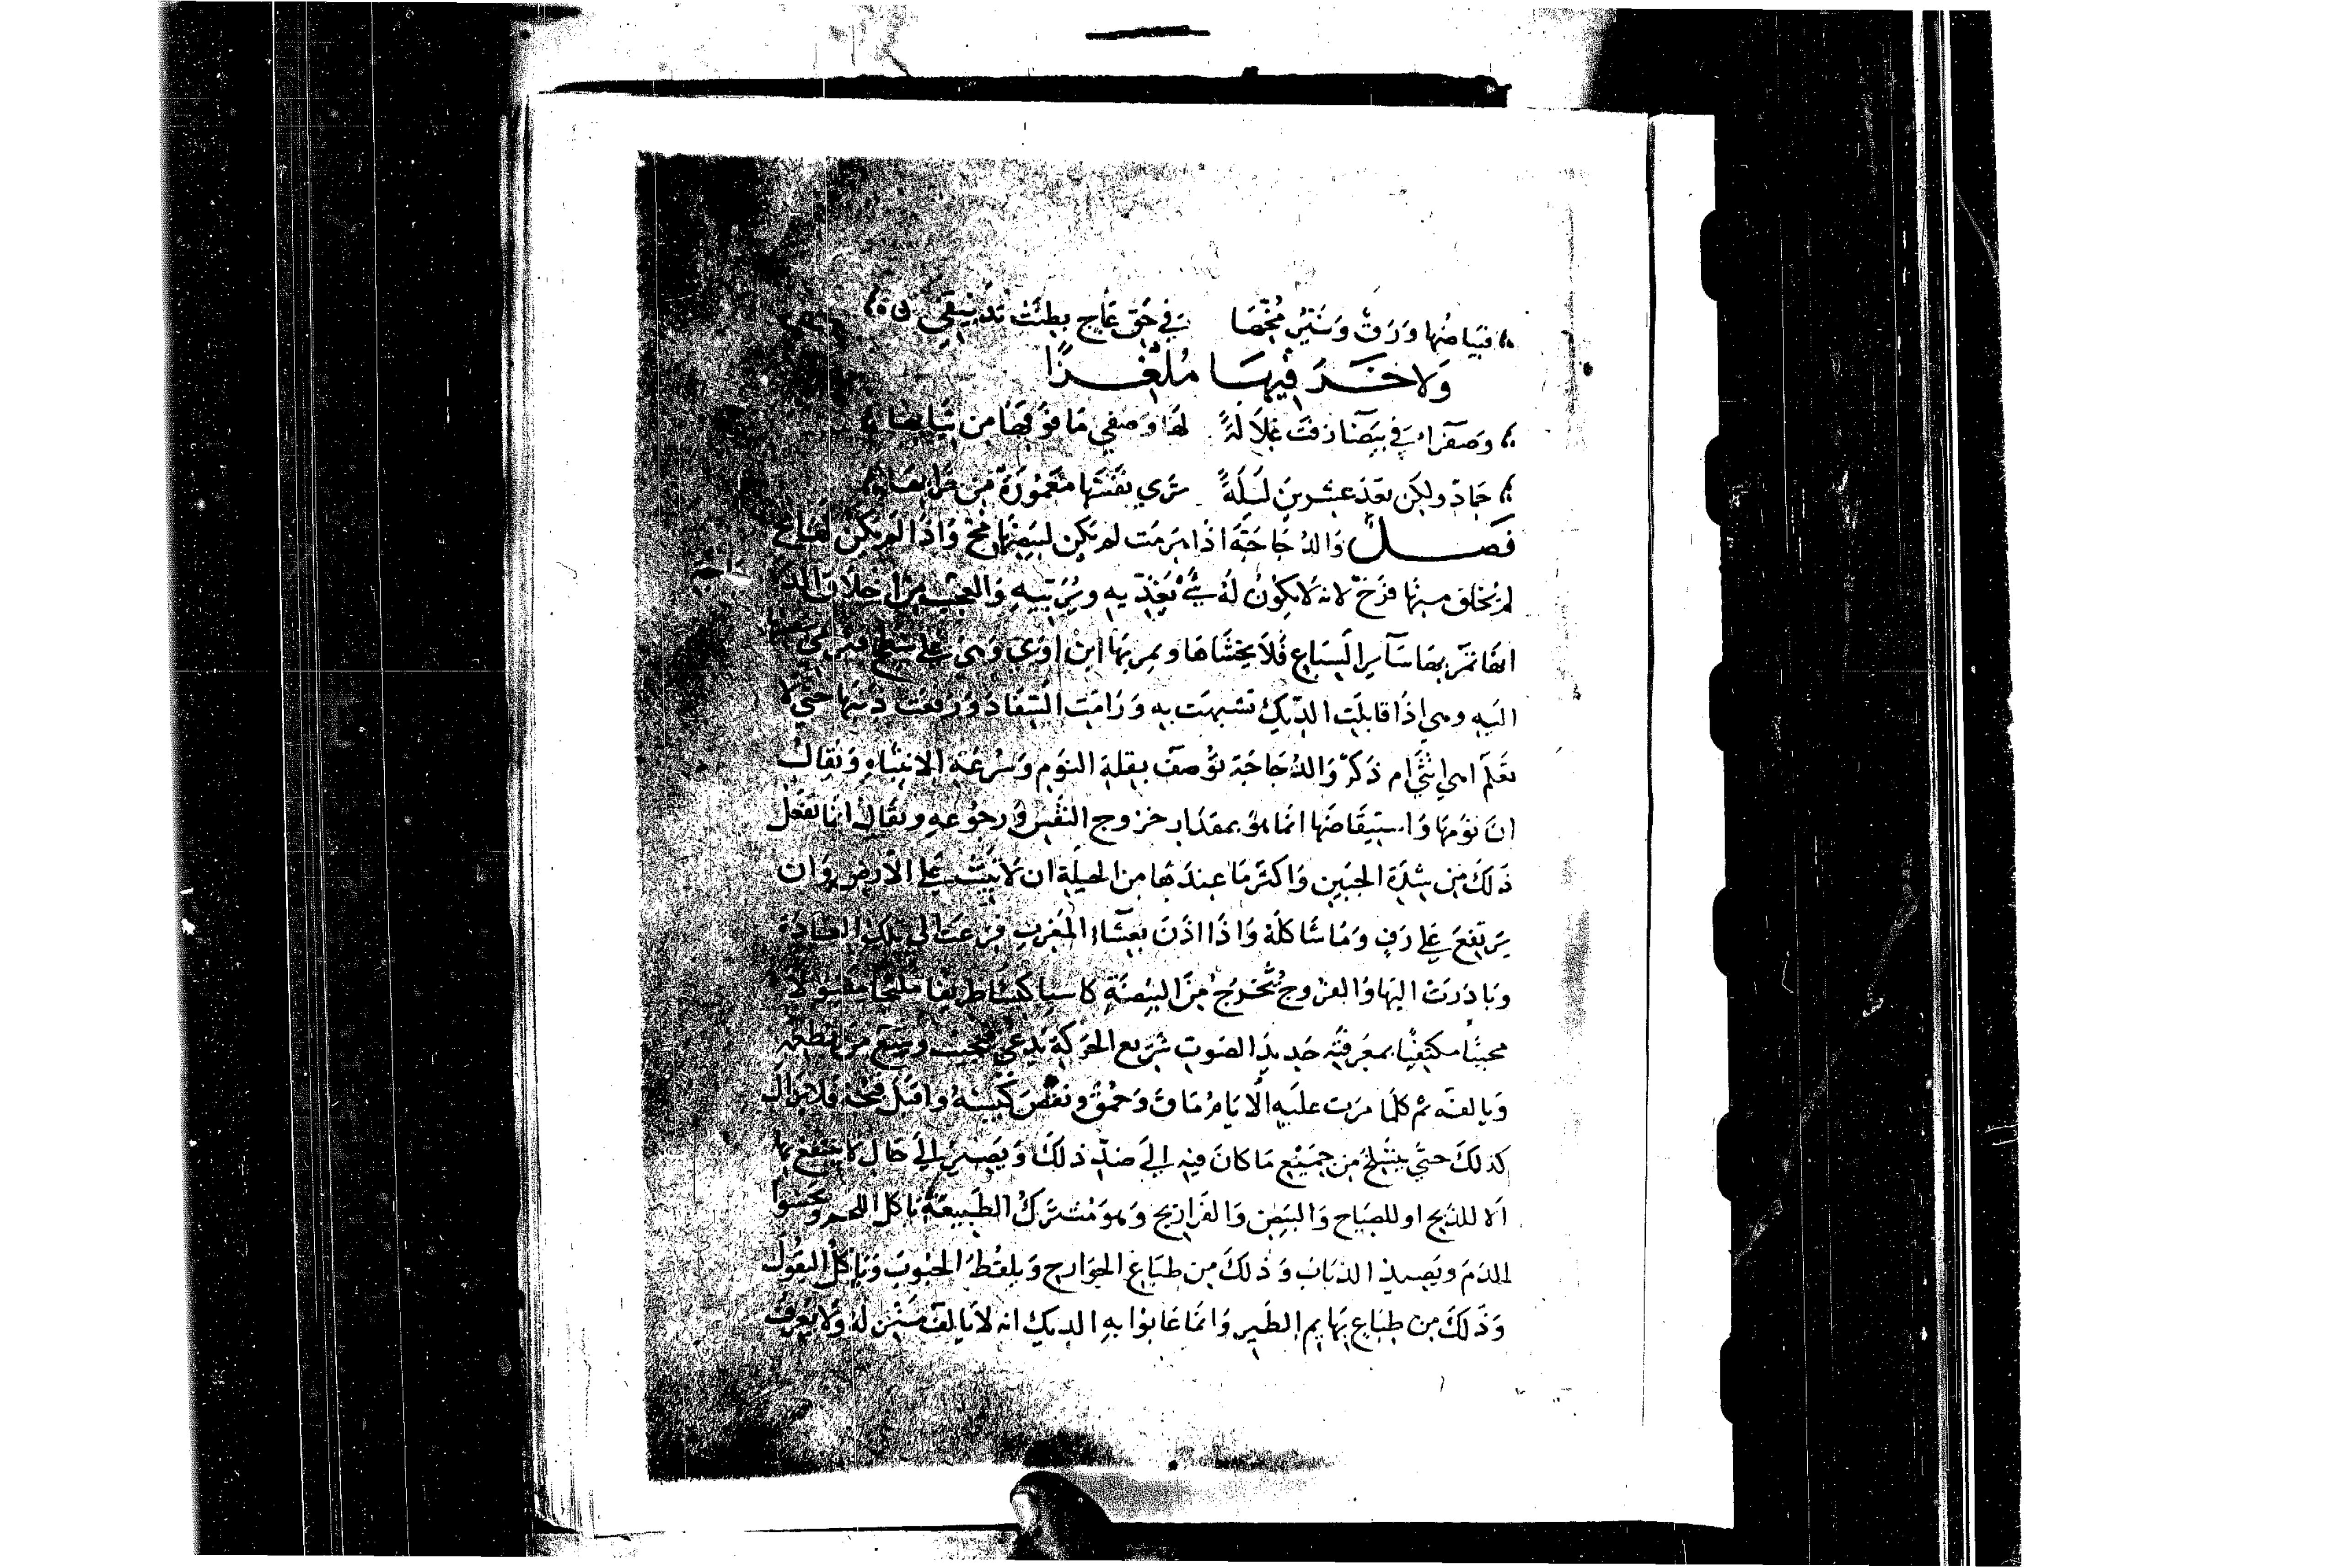 فبياضها ورق وتبر مخها في حق عاج بطنت بدبيقي
ولاخر فيها ملغزا
وصفراء في بيضا رقت غلالة لها وصفي ما فوقها من ثيابها
جماد ولكن بعد عشرين ليلة ترى نفسها معمورة من خرابها
فصل والدجاجة اذا هرمت لم يكن لبيضها مح واذا لم يكن لها مح
لم يخلق منها فرخ لانه لا يكون له شيء يغذيه ويربيه والعجب من اخلاق الدجاجة
انها تمر بها ساير السباع فلا يخشاها ويمر بها ابن اوى وهي على سطح فترمي نفسها
اليه وهي اذا قابلت الديك تشبهت به ورامت السفاد ورفعت ذنبها حتى لا
تعلم اهي انثى ام ذكر والدجاجة توصف بقلة النوم وسرعة الانتباه ويقال
ان نومها واستيقاضها انما هو بمقدار خروج النفس ورجوعه ويقال انما تفعل
ذلك من شدة الجبن واكثر ما عندها من الحيلة ان لا تبيت على الارض وان
يرتفع على رف وما شاكله واذا اذن بعشاء المغرب فزعت الى تلك العادة
وبادرت اليها والفروج يخرج من البيضة كاسيا كيسا ظريفا مليحا مقبولا
محببا مكتفيا بمعرفته حديد الصوت سريع الحركة يدعى فيجيب ويتبع من يطعمه
ويالفه ثم كلما مرت عليه الايام ماق وحمق ونقص كيسه واقبل قبحه فلا يزال
كذلك حتى ينسلخ من جميع ما كان فيه الى ضد ذلك ويصير الى حال لا ينتفع بها
الا للذبح او للصياح والبيض والفراريج وهو مشترك الطبيعة ياكل اللحم ويحسوا
الدم ويصيد الذباب وذلك من طباع الجوارح ويلقط الحبوب وياكل البقول
وذلك من طباع بهايم الطير وانما عابوا به الديك انه لا يالف منزله ولا يعرف